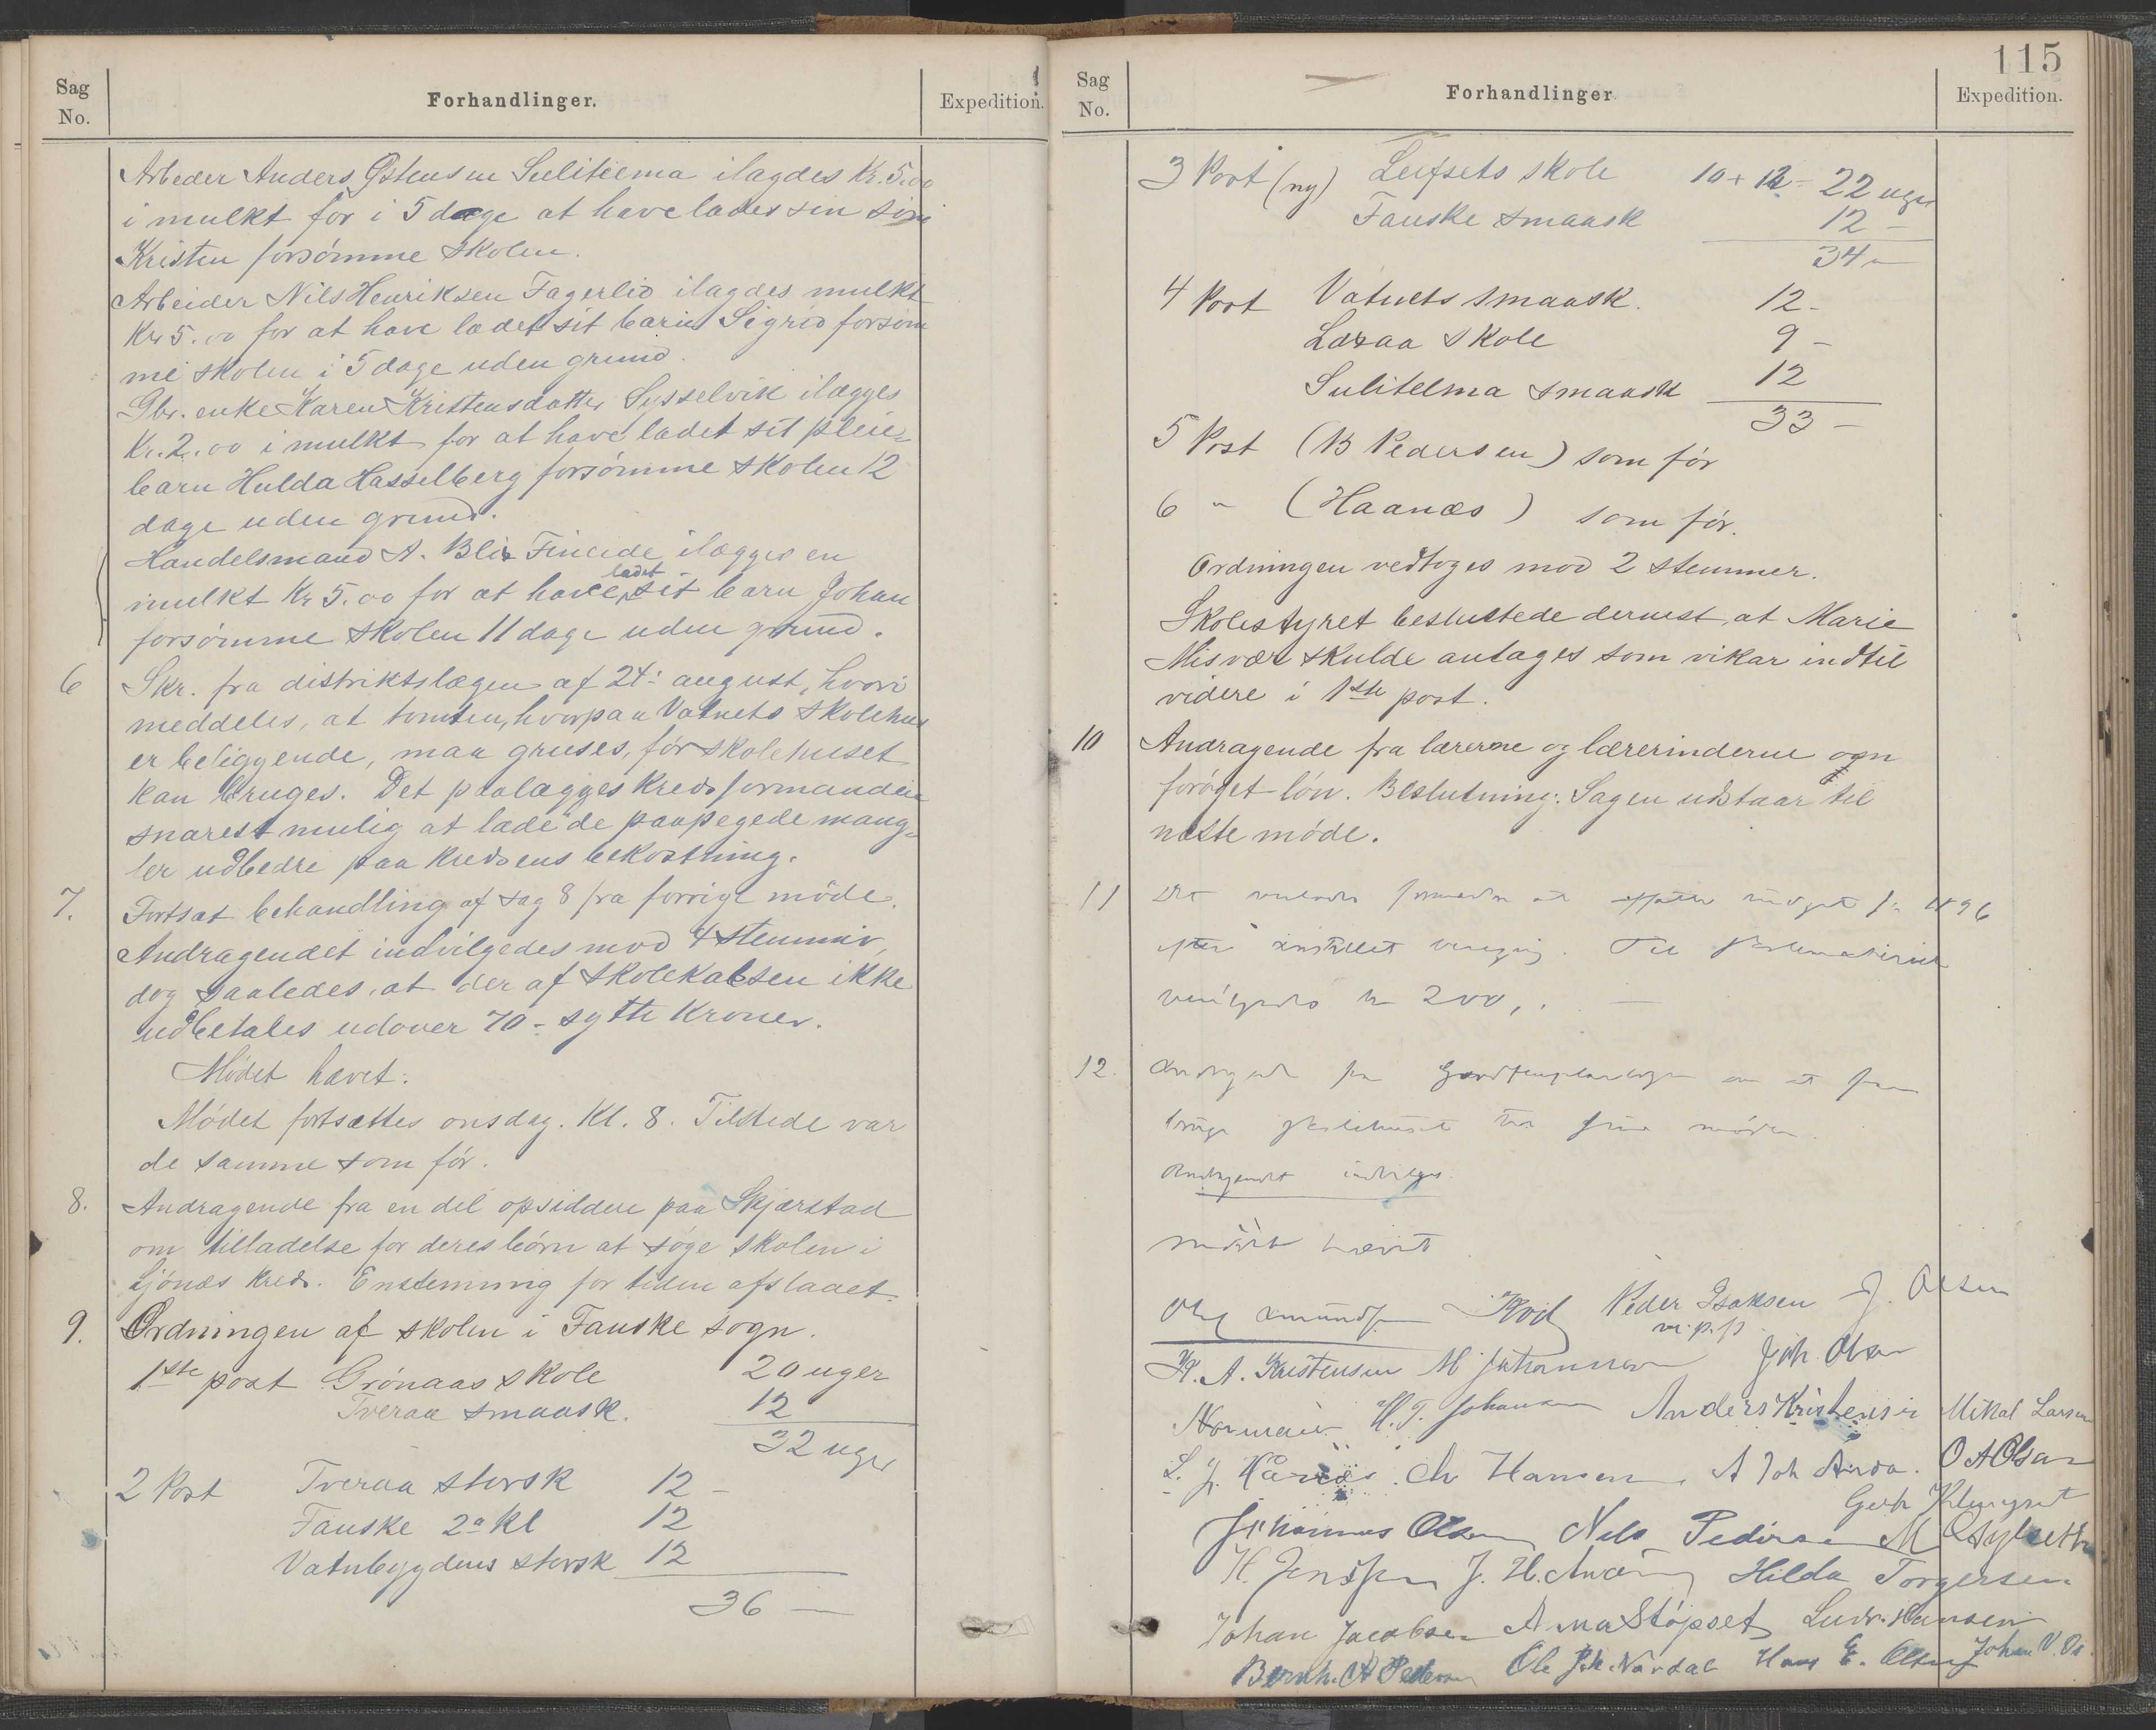 Sag
No.
Forhandlinger.
Expedition.
Arbeder Anders Østensen Sulitelma ilagdes Kr. 5.00
i mulkt for i 5 dage at have ladet sin søn
Kristen forsømme skolen.
Arbeider Nils Henriksen Fagerlid ilagdes mulkt
Kr 5.00 for at have ladet sit barn Sigrid forsøm
me skolen i 5 dage uden grund.
Gbr. enke Karen Kristensdatter Sysselvik ilægges
Kr. 2.00 i mulkt for at have ladet sit pleie-
barn Hulda Hasselberg forsømme skolen 12
dage uden grund.
Handelsmand A. Blix Fineide ilægges en
mulkt Kr 5.00 for at have ladet sit barn Johan
forsømme skolen 11 dage uden grund.
6 Skr. fra distriktslægen af 24: august, hvori
meddeles, at tomten, hvorpaa Vatnets skolehus
er beliggende, maa gruses, før skolehuset
kan bruges. Det paalægges kredsformanden
snarest mulig at lade de paapegede mang-
ler udbedre paa kredsens bekostning.
7. Fortsat behandling af sag 8 fra forrige møde.
Andragendet indvilgedes mod 4 stemmer,
dog saaledes, at der af skolekassen ikke
udbetales udover 70 - sytti Kroner.
Mødet hævet.
Mødet fortsættes onsdag. Kl. 8. Tilstede var
de samme som før.
8. Andragende fra en del opsiddere paa Skjærstad
om tilladelse for deres børn at søge skolen i
Ljønæs kreds. Enstemmig for tiden afslaaet.
9. Ordningen af skolen i Fauske sogn.
1ste post Grønaas skole 20 uger
Tveraa smaask. 12
32 uger
2 Post Tveraa storsk 12 -
Fauske 2a kl 12
Vatnbygdens storsk 12
36 —
115
Sag
No.
Forhandlinger
Expedition.
3 Post (ny) Leifsets skole 10 + 12 = 22 uger
Fauske smaask 12 -
34 -
4 Post Vatnets smaask. 12 -
Laxaa skole 9 -
Sulitelma smaask 12
33 -
5 Post (B Pedersen) som før
6 " (Haanæs) som før.
Ordningen vedtoges mod 2 stemmer.
Skolestyret besluttede dernest, at Marie
Misvær skulde antages som vikar indtil
videre i 1ste post.
10 Andragende fra lærerne og lærerinderne om
forøget løn. Beslutning: Sagen udstaar til
næste møde.
11 Det for 1896
efter
kr 200,
12. Andragende fra Goodtemplarlogen om at faa
bruge skolehuset til sine møder.
Andragendet indvilges.
Mødet hævet
Peder Isaksen J. Olsen
m. p. p
K. A. Kristensen M Johannesen Joh. Olsen
Normann H. T. Johansen Anders Kristensen Mikal Larsen
Chr Hansen A Joh O A Olsen
Johannes Olsen Nils Pedersen
H. Jenssen Hilda Torgersen
Johan Jacobsen Anna Støpset Ludv. Hansen
Bernh. A Pedersen Ole Joh. Nordal Hans E. Olsen